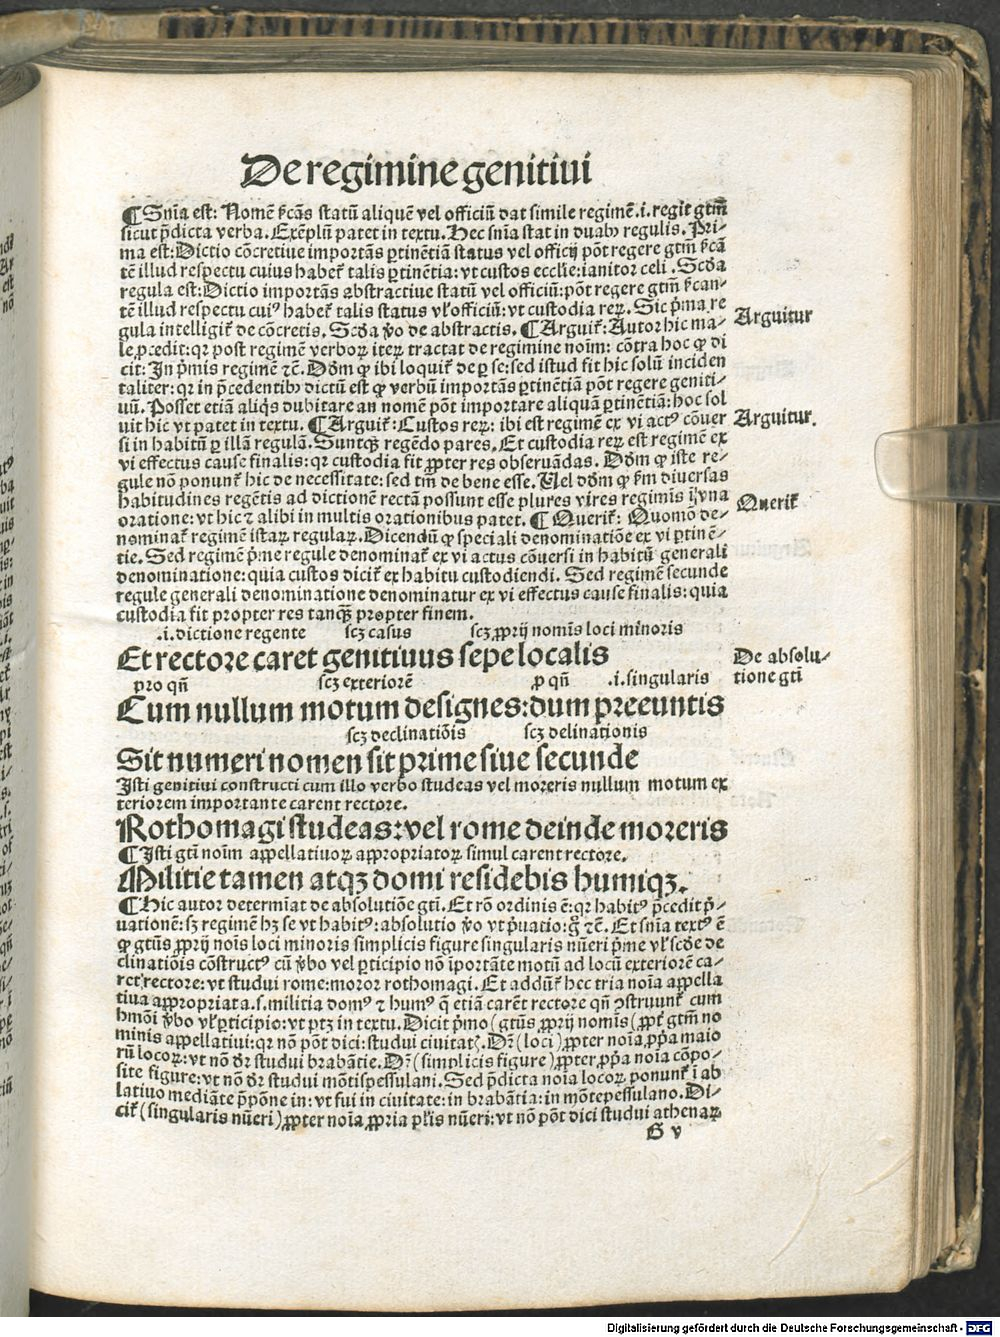 De regimine genitiui
¶ Snīa est: Nomē s̄cās statū aliquē vel officiū dat simile regimē .i. regit gtm̄
sicut p̄dicta verba. Exēplū patet in textu. Hec snīa stat in duabꝫ regulis. Pri-
ma est: Dictio cōcretiue importās ꝑtinētiā status vel officij pōt regere gtm̄ s̄cā
tē illud respectu cuius habet᷑ talis ꝑtinētia: vt custos ecclīe: ianitor celi. Scd̄a
regula est: Dictio importās abstractiue statū vel officiū: pōt regere gtm̄ s̄can-
tē illud respectu cuiꝰ habet᷑ talis status vl̓ officiū: vt custodia reꝝ. Sic p̄ma re
gula intelligit᷑ de cōcretis. Scd̄a v̓o de abstractis. ¶ Arguit᷑: Autor hic ma-
le ꝓcedit: qꝛ post regimē verboꝝ iteꝝ tractat de regimine noīm: cōtra hoc ꝙ di
cit: In p̄mis regimē ⁊c̄. Dd̄m ꝙ ibi loquit᷑ de ꝑ se: sed istud fit hic solū inciden
taliter: qꝛ in p̄cedentibꝫ dictū est ꝙ verbū importās ꝑtinētiā pōt regere geniti-
uū. Posset etiā aliq̄s dubitare an nomē pōt importare aliquā ꝑtinētiā: hoc sol
uit hic vt patet in textu. ¶ Arguit᷑: Custos reꝝ: ibi est regimē ex vi actꝰ cōuer
si in habitū ꝑ illā regulā. Suntqꝫ regēdo pares. Et custodia reꝝ est regimē ex
vi effectus cause finalis: qꝛ custodia fit ꝓpter res obseruādas. Dd̄m ꝙ iste re-
gule nō ponunt᷑ hic de necessitate: sed tm̄ de bene esse. Uel dd̄m ꝙ s̄m diuersas
habitudines regētis ad dictionē rectā possunt esse plures vires regimis ī vna
oratione: vt hic ⁊ alibi in multis orationibus patet. ¶ Querit᷑: Quomō de-
nominat᷑ regimē istaꝝ regulaꝝ. Dicendū ꝙ speciali denominatiōe ex vi ꝑtinē-
tie. Sed regimē p̄me regule denominat᷑ ex vi actus cōuersi in habitū generali
denominatione: quia custos dicit᷑ ex habitu custodiendi. Sed regimē secunde
regule generali denominatione denominatur ex vi effectus cause finalis: quia
custodia fit propter res tanqꝫ propter finem.
.i. dictione regente scꝫ casus scꝫ ꝓprij nomīs loci minoris
Et rectore caret genitiuus sepe localis
pro qn̄ scꝫ exteriorē ꝓ qn̄ .i. singularis
Cum nullum motum designes: dum preeuntis
scꝫ declinatiōis scꝫ delinationis
Sit numeri nomen sit prime siue secunde
Isti genitiui constructi cum illo verbo studeas vel moreris nullum motum ex
teriorem importante carent rectore.
Rothomagi studeas: vel rome deinde moreris
¶ Isti gtī noīm appellatiuoꝝ appropriatoꝝ simul carent rectore.
Militie tamen atqꝫ domi residebis humiqꝫ.
¶ Hic autor determīat de absolutiōe gtī. Et rō ordinis ē: qꝛ habitꝰ p̄cedit p̄-
uationē: sꝫ regimē hꝫ se vt habitꝰ: absolutio v̓o vt p̄uatio: g̊ ⁊c̄. Et snīa textꝰ ē
ꝙ gtūs ꝓprij noīs loci minoris simplicis figure singularis nūeri p̄me vl̓ scd̄e de
clinatiōis cōstructꝰ cū v̓bo vel ꝑticipio nō īportāte motū ad locū exteriorē ca-
ret rectore: vt studui rome: moror rothomagi. Et addūt᷑ hec tria noīa appella
tiua appropriata .s. militia domꝰ ⁊ humꝰ q̄ etiā carēt rectore qn̄ ꝯstruunt᷑ cum
hmōi v̓bo vl̓ ꝑticipio: vt ptꝫ in textu. Dicit p̄mo (gtūs ꝓprij nomīs) ꝓpt̓ gtm̄ no
minis appellatiui: qꝛ nō pōt dici: studui ciuitatꝭ. Dꝛ̄ (loci) ꝓpter noīa ꝓp̄a maio
rū locoꝝ: vt nō dꝛ̄ studui brabātie. Dꝛ̄ (simplicis figure) ꝓpter ꝓp̄a noīa cōpo-
site figure: vt nō dꝛ̄ studui mōtispessulani. Sed p̄dicta noīa locoꝝ ponunt᷑ ī ab
latiuo mediāte p̄pōne in: vt fui in ciuitate: in brabātia: in mōtepessulano. Di-
cit᷑ (singularis nūeri) ꝓpter noīa ꝓpria pl̓is nūeri: vt nō pōt dici studui athenaꝝ
G v
Arguitur
Arguitur.
Querit᷑
De absolu-
tione gtī
Digitalisierung gefördert durch die Deutsche Forschungsgemeinschaft - DFG